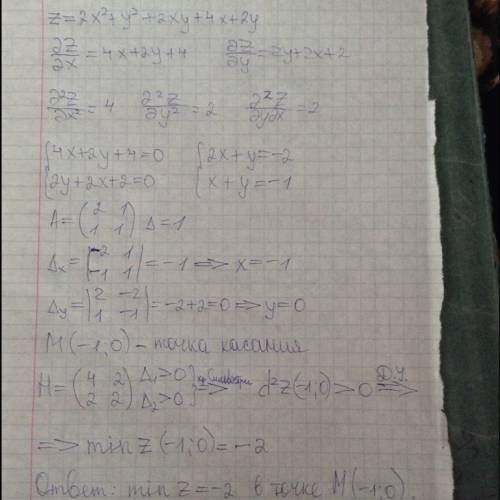 z=2x²+y²+2xy+4x+2y
∂z/∂x=4x+2y+4 ∂z/∂y=2y+2x+2
∂²z/∂x²=4 ∂²z/∂y²=2 ∂²z/∂y∂x=2
{4x+2y+4=0 {2x+y=-2
{2y+2x+2=0 {x+y=-1
A=(2 1; 1 1) Δ=1
Δx=|-2 1; -1 1|=-1 ⇒ x=-1
Δy=|2 -2; 1 -1|=-2+2=0 ⇒ y=0
M(-1;0) - точка касания
H=(4 2; 2 2) Δ₁>0 Δ₂>0} ⇒ d²z(-1;0)>0 Д.У. ⇒
⇒ min z(-1;0)=-2
Ответ: min z=-2 в точке M(-1;0)